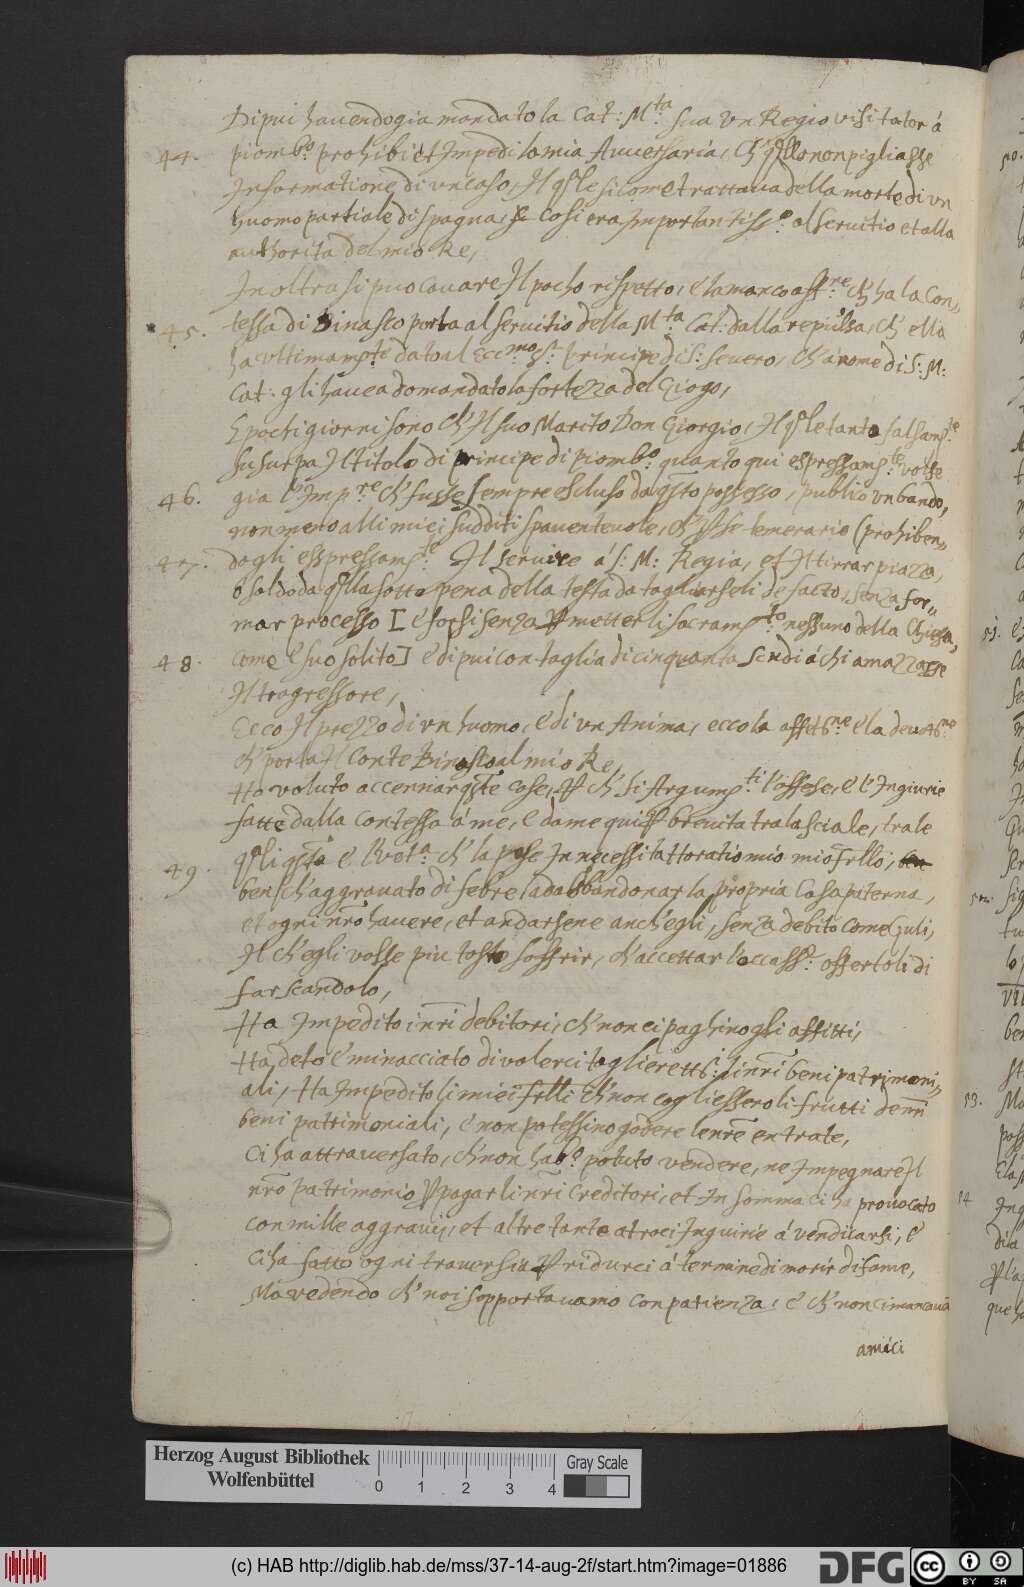 Di pui havendo gia mandato la Cat: M.ta sua un Regio visitator á
44. piomb.o prohibi et Impedi la mia Avversaria, ch' q'llo non pigliasse
Informatione di un caso, Il q'le si come trattava della morte di un
huomo partiale di spagna, & cosi era Importantiss.o al servitio et alla
authorita del mio Re,
In oltra si puo cavare Il pocho rispetto, e la manco aff.ne ch' ha la Con„
45. tessa di Binasco porta al servitio della M.ta Cat: dalla repulsa, ch' ella
ha ultimam.te dato al Ecc.mo s.r principe di S: severo, ch' á nome di S: M:
Cat: gli havea domandato la fortezza del Giogo,
E pochi giorni sono ch' Il suo Marito Don Giorgio, Il q'le tanto falsam.te
su surpa Il titolo di principe di piomb.o quanto qui espressam.te volse
46. gia l'Imp.re ch' fusse sempre escluso da q'sto possesso, publico un bando,
non meno alli miei sudditi spaventevole, ch' temerario (prohiben„
47. dogli esspressam.te Il servire á S: M: Regia, et Il tirrar piazza,
o soldo da q'lla sotto pena della testa da tagliarseli de facto, senza for„
mar processo [e forsi senza metterli sacram.to nessuno della Chiesa,
48. come e suo solito] e di pui con taglia di cinquanta scudi á chi amazzasse
Il tragressore,
Ecco Il prezzo di un huomo, e di un Anima, ecco la affett.ne e la devot.ne
ch' porta Il Conte Binasco al mio Re,
Ho voluto accennar q'ste cose, ch' si Argum.ti l'offese, e l'Ingiurie
fatte dalla Contessa á me, e da me qui p brevita tralasciate, tra le
49. q'li q'sta e l'

ben ch' aggravato di febre la da abbandonar la propria Casa paterna,
et ogni nro havere, et andarsene anch'egli, senza debito come Guli,
Il ch' egli volse piu tosto soffrir, ch' accettar l'occass.e offertoli di
far scandolo,
Ha Impedito i nri debitori, ch' non ci paghino gli affitti,
Ha deto e minacciato di volerci togliere li nri beni patrimoni„
ali, Ha Impedito li miei frlli ch' non cogliessero li frutti de nri
beni patrimoniali, e non potessino godere le nre entrate,
Ci ha attraversato, ch' non hab.o potuto vendere, ne Impegnare Il
nro patrimonio p pagar li nri Creditori, et In somma ci ha provocato
con mille aggravij, et altre tante atroci Inguirie á vendicarsi, e
ci ha fatto ogni traversia p ridurci á termine di morir di fame,
Ma vedendo ch' noi sopportavamo con patienza, e ch' non ci mancava
amici
Herzog August Bibliothek
Wolfenbüttel
0 1 2 3 4
Gray Scale
(c) HAB http://diglib.hab.de/mss/37-14-aug-2f/start.htm?image=01886
DFG
cc BY SA